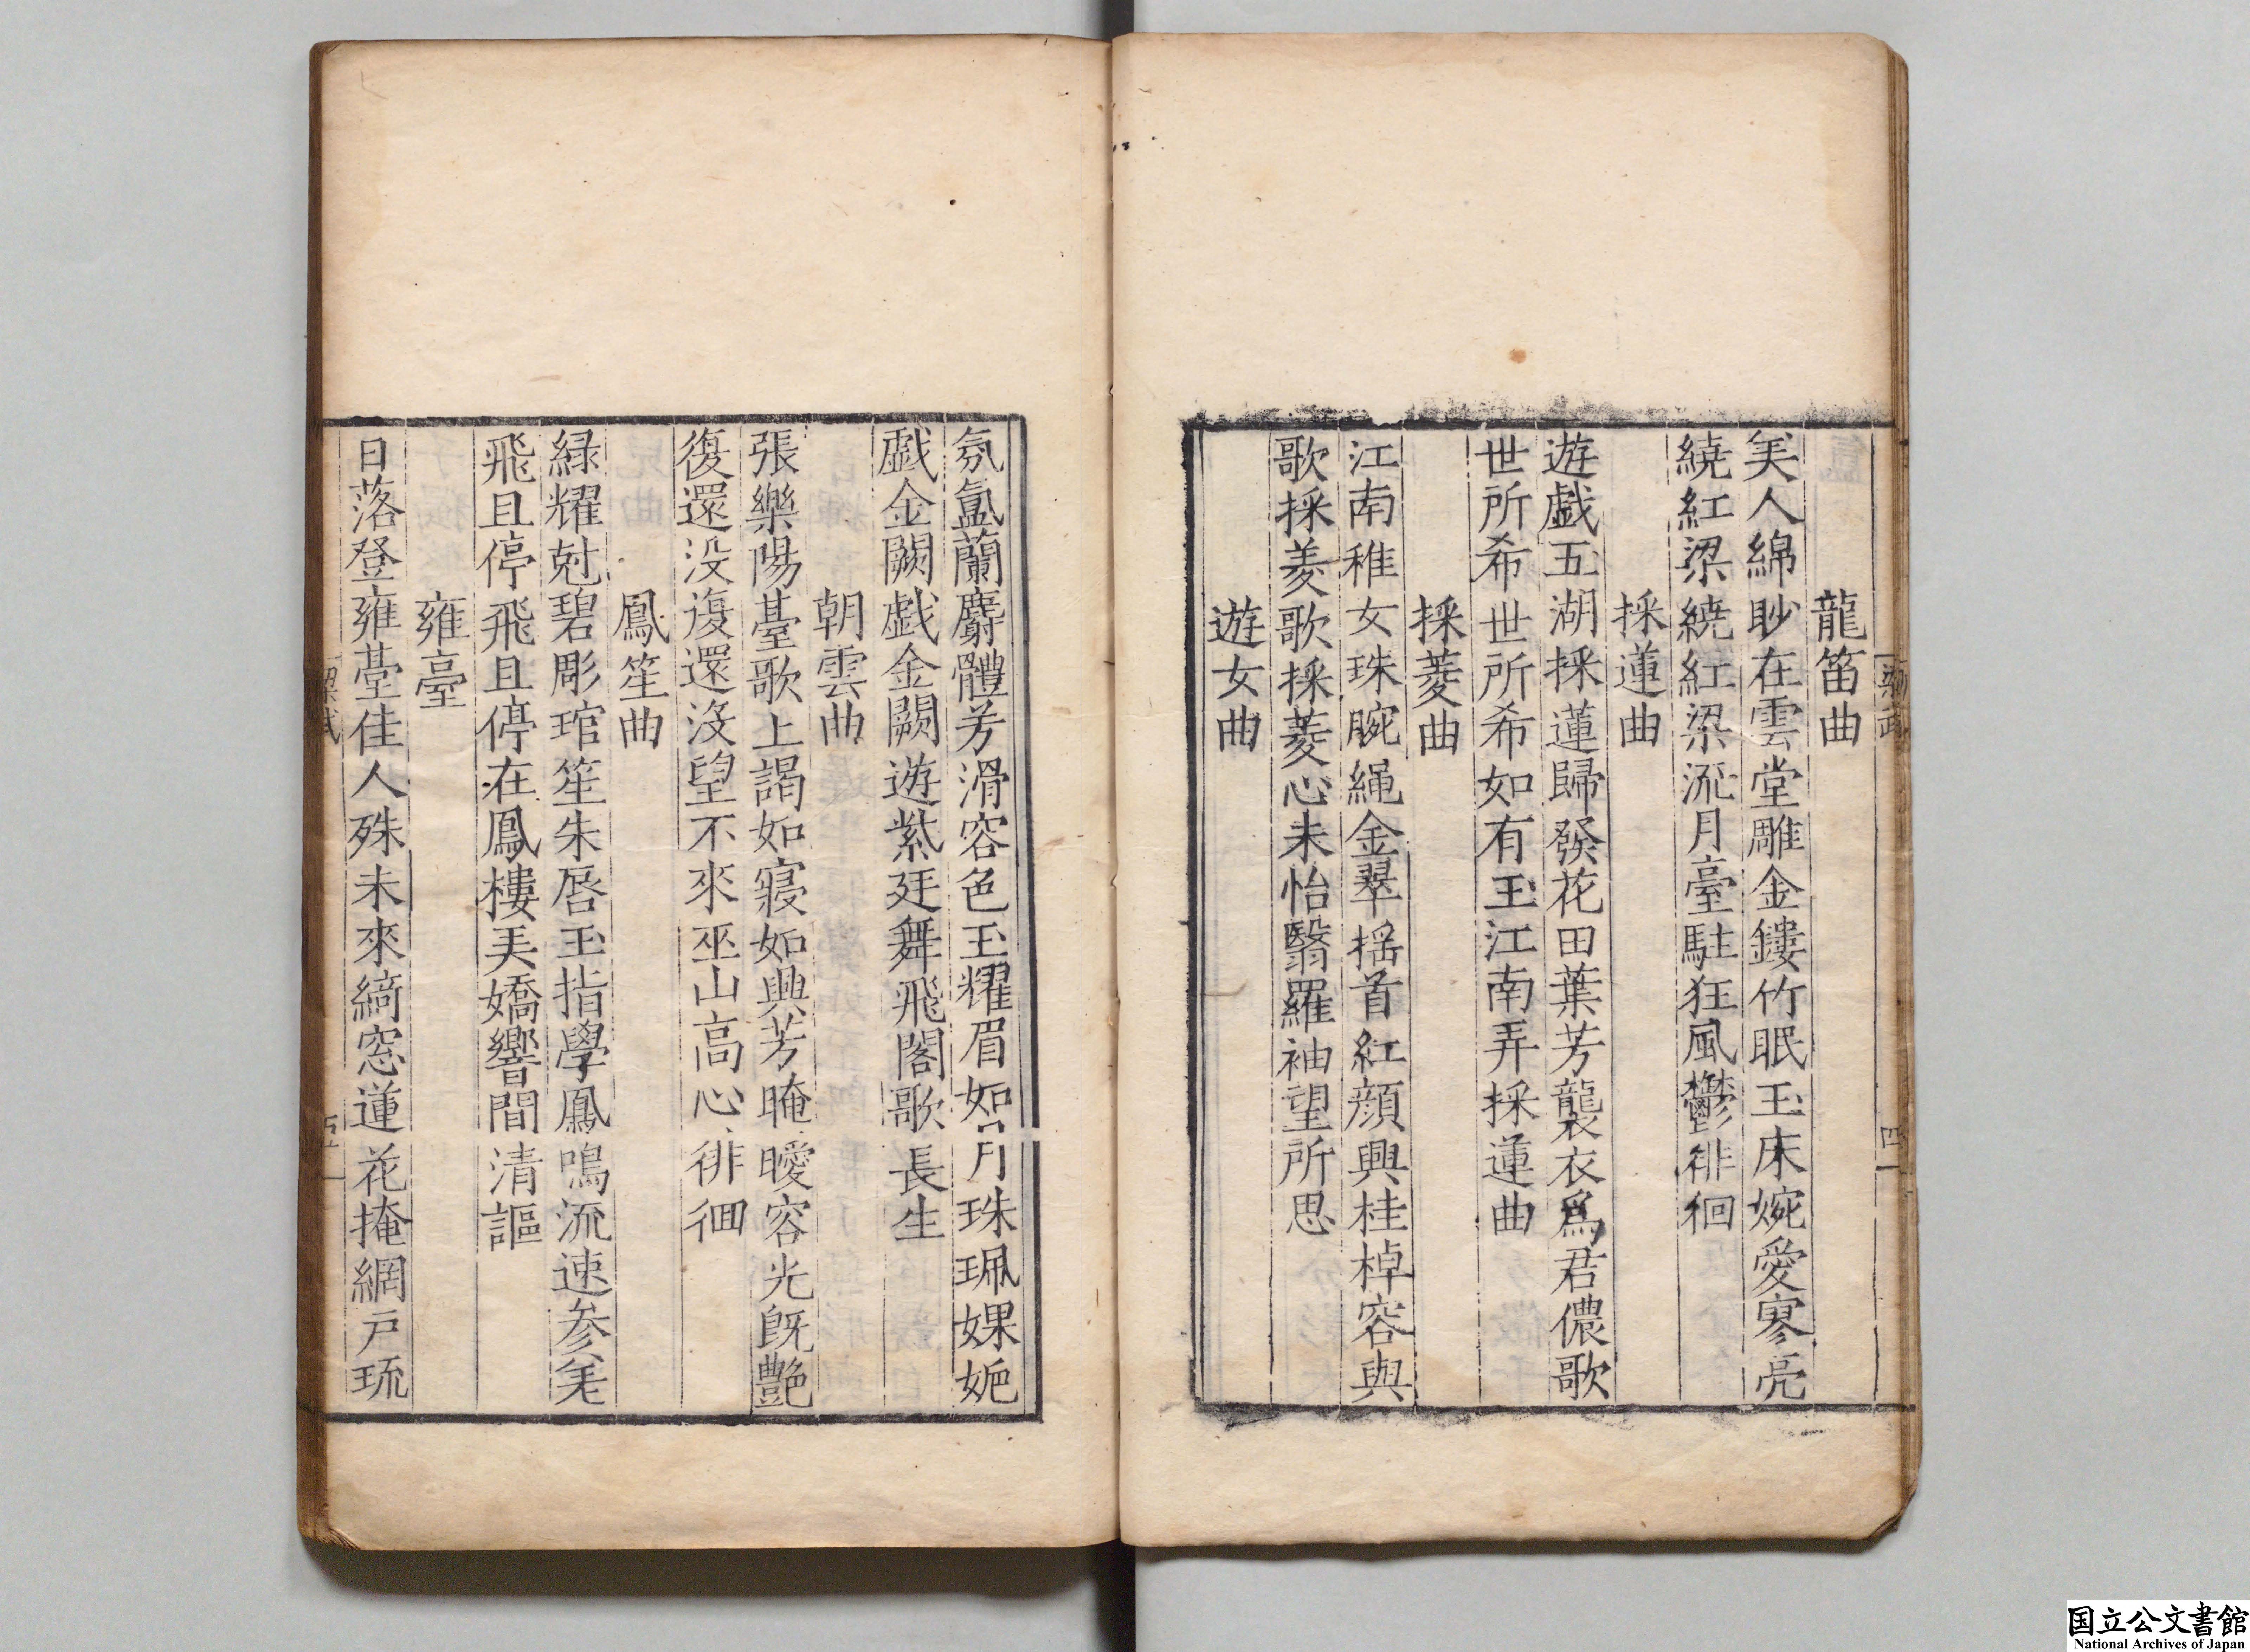 龍笛曲
美人綿眇在雲堂雕金鏤竹眠玉床婉愛寥亮
繞紅梁繞紅梁流月臺駐狂風鬱徘徊
採蓮曲
遊戯五湖採蓮歸發花田葉芳襲衣爲君儂歌
世所希世所希如有玉江南弄採蓮曲
採菱曲
江南稚女珠腕繩金翠揺首紅顔興桂棹容與
歌採菱歌採菱心未怡翳羅袖望所思
遊女曲
四
氛氳蘭麝體芳滑容色玉耀眉如月珠珮婐妮
戯金闕戯金闕遊紫廷舞飛閣歌長生
朝雲曲
張樂陽䑓歌上謁如寢如興芳晻曖容光旣艶
復還没復還没望不來巫山高心徘徊
鳳笙曲
緑耀尅碧彫琯笙朱唇玉指學鳳鳴流速参差
飛且停飛且停在鳳樓美嬌響間清謳
雍臺
日落登雍䑓佳人殊未來綺窓蓮花掩網戸琉
梁武
五
国立公文書館
National Archives of Japan